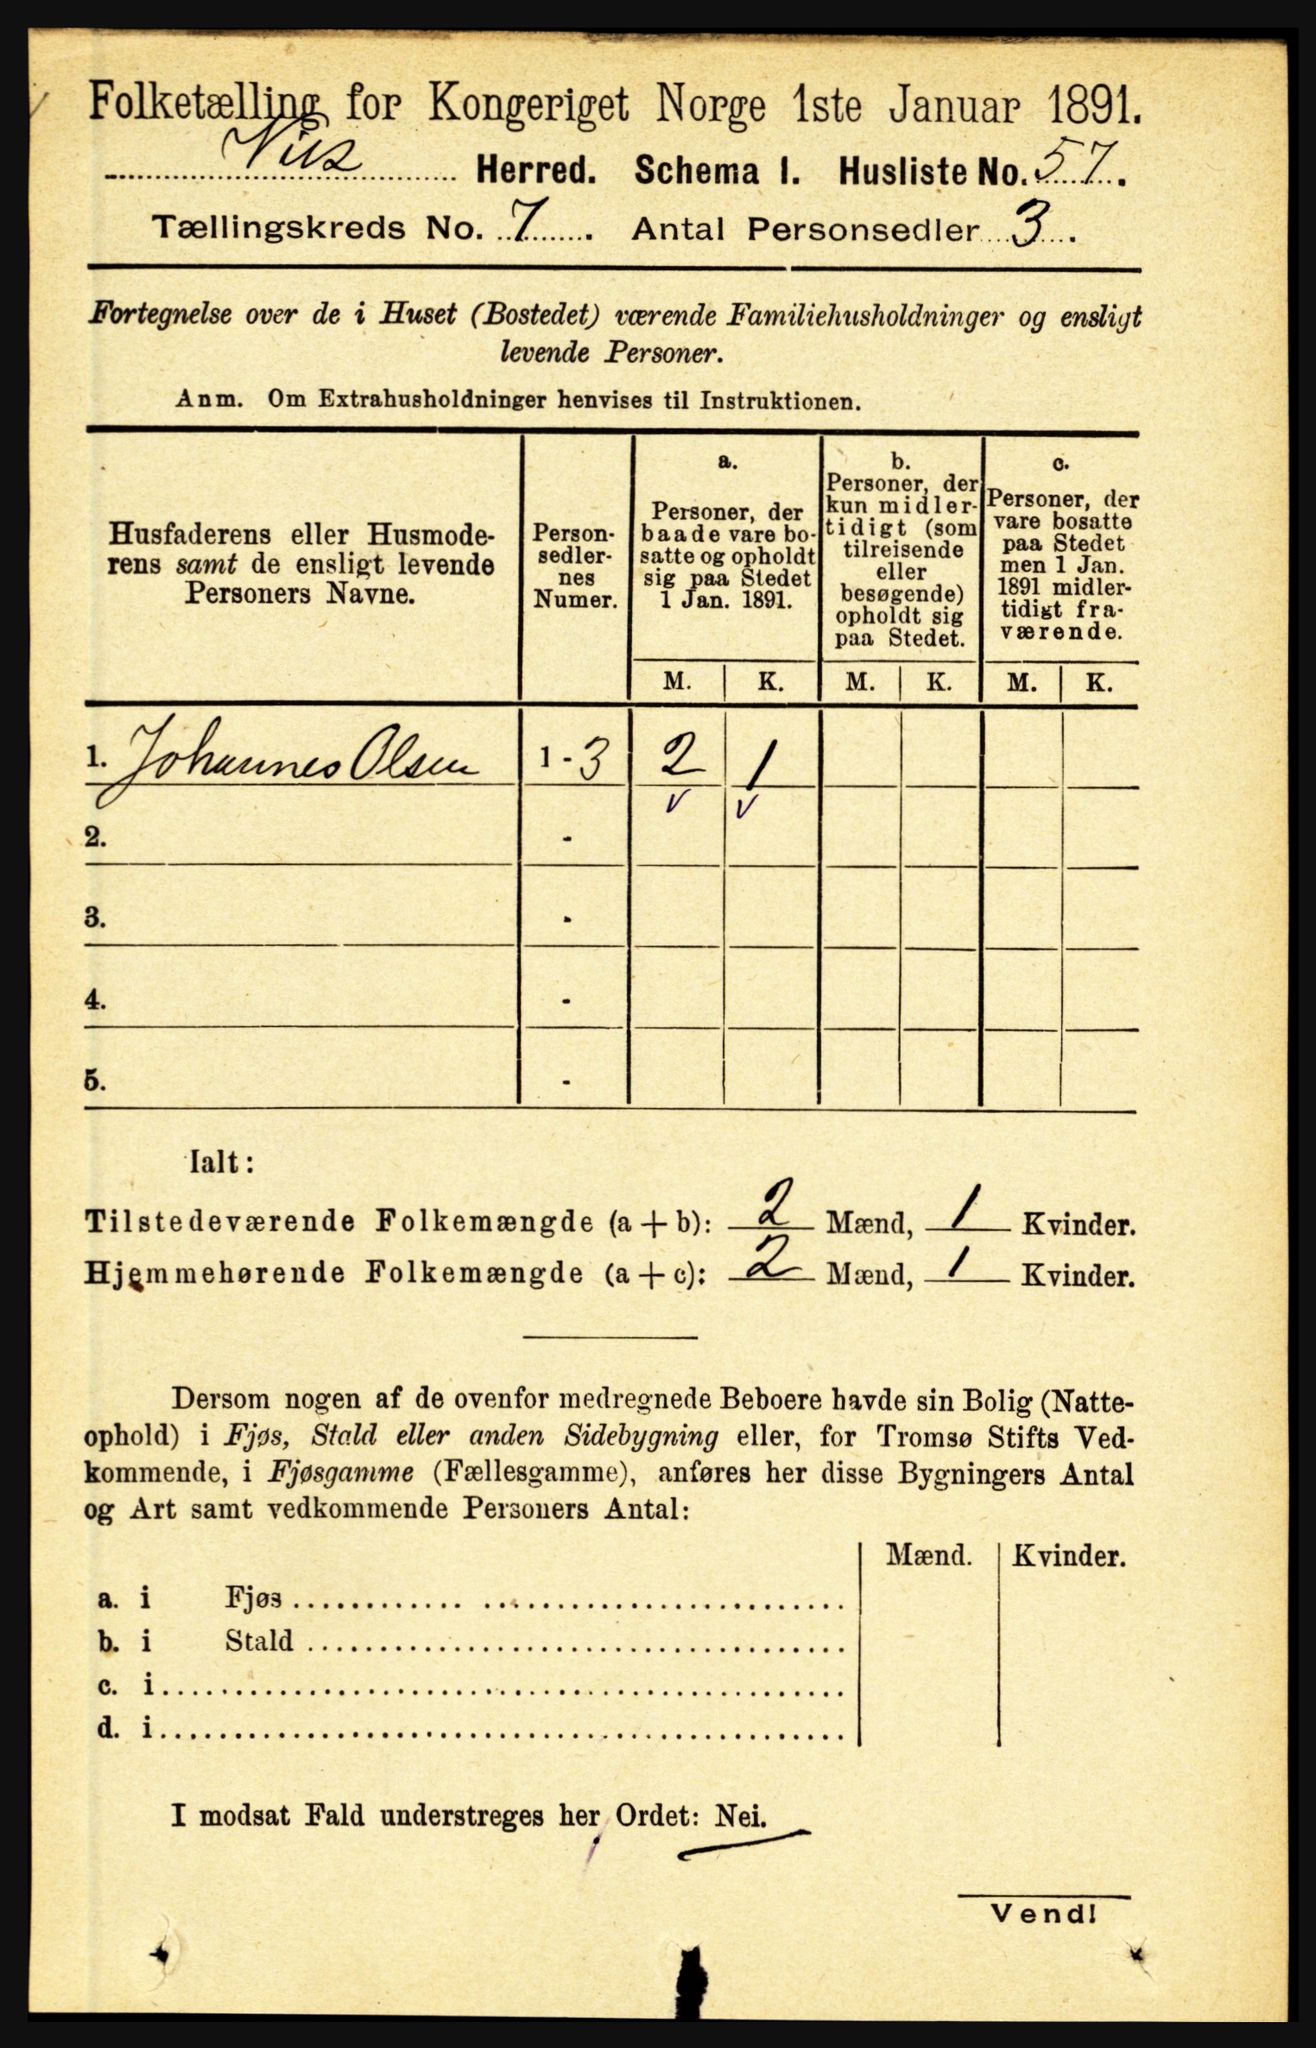 Folketælling for Kongeriget Norge 1ste Januar 1891.
Vik Herred. Schema I. Husliste No. 57.
Tællingskreds No. 7. Antal Personsedler 3.
Fortegnelse over de i Huset (Bostedet) værende Familiehusholdninger og ensligt
levende Personer.
Anm. Om Extrahusholdninger henvises til Instruktionen.
Husfaderens eller Husmode-
rens samt de ensligt levende
Personers Navne.
Person-
sedler-
nes
Numer.
a.
Personer, der
baade vare bo-
satte og opholdt
sig paa Stedet
1 Jan. 1891.
b.
Personer, der
kun midler-
tidigt (som
tilreisende
eller
besøgende)
opholdt sig
paa Stedet.
c.
Personer, der
vare bosatte
paa Stedet
men 1 Jan.
1891 midler-
tidigt fra-
værende.
M. K. M. K. M. K.
1. Johannes Olsen 1 - 3 2 1
2. -
3. -
4. -
5. -
Ialt:
Tilstedeværende Folkemængde (a + b): 2 Mænd, 1 Kvinder.
Hjemmehørende Folkemængde (a + c): 2 Mænd, 1 Kvinder.
Dersom nogen af de ovenfor medregnede Beboere havde sin Bolig (Natte-
ophold) i Fjøs, Stald eller anden Sidebygning eller, for Tromsø Stifts Ved-
kommende, i Fjøsgamme (Fællesgamme), anføres her disse Bygningers Antal
og Art samt vedkommende Personers Antal:
Mænd. Kvinder.
a. i Fjøs
b. i Stald
c. i
d. i
I modsat Fald understreges her Ordet: Nei.
Vend!